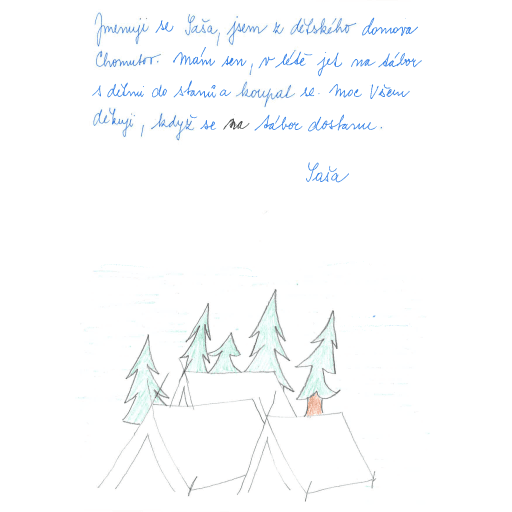 Jmenuji se Saša, jsem z dětského domova
Chomutov. Mám sen, v létě jet na tábor
s dětmi do stanů a koupat se. Moc Všem
děkuji, když se na tábor dostanu.
Saša